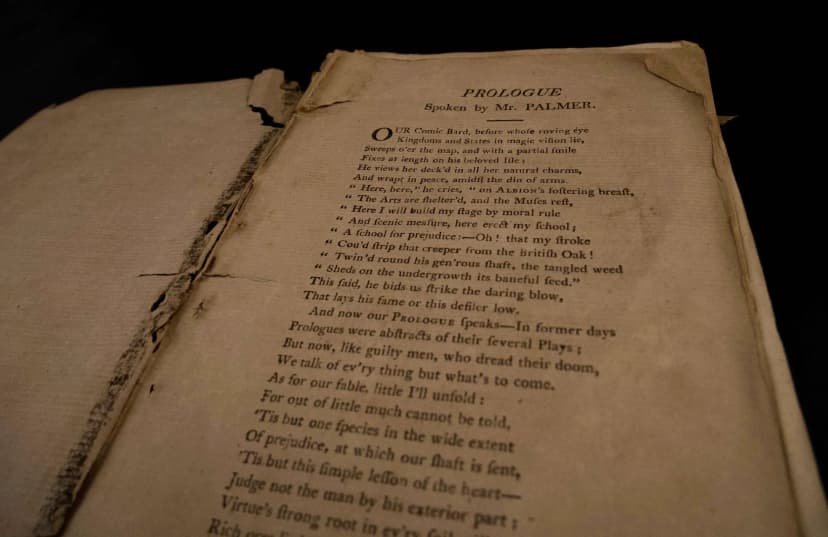 PROLOGUE
Spoken by Mr. PALMER.
OUR Comic Bard, before whoſe roving eye
Kingdoms and States in magic viſion lie,
Sweeps o'er the map, and with a partial ſmile
Fixes at length on his beloved Iſle:
He views her deck'd in all her natural charms,
And wrapt in peace, amidſt the din of arms.
" Here, here," he cries, " on ALBION's foſtering breaſt,
" The Arts are ſhelter'd, and the Muſes reſt,
" Here I will build my ſtage by moral rule
" And ſcenic meaſure, here erect my ſchool;
" A ſchool for prejudice:—Oh! that my ſtroke
" Cou'd ſtrip that creeper from the Britiſh Oak!
" Twin'd round his gen'rous ſhaft, the tangled weed
" Sheds on the undergrowth its baneful ſeed."
This ſaid, he bids us ſtrike the daring blow,
That lays his fame or this defiler low.
And now our PROLOGUE ſpeaks—In former days
Prologues were abſtracts of their ſeveral Plays;
But now, like guilty men, who dread their doom,
We talk of ev'ry thing but what's to come.
As for our fable, little I'll unfold:
For out of little much cannot be told,
'Tis but one ſpecies in the wide extent
Of prejudice, at which our ſhaft is ſent,
'Tis but this ſimple leſſon of the heart—
Judge not the man by his exterior part;
Virtue's ſtrong root in ev'ry
Rich